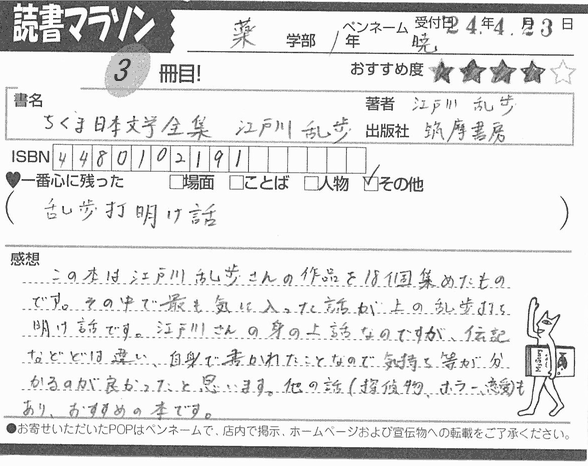 読書マラソン
薬 学部 / 年 ペンネーム 暁 受付日 24年4月23日
3 冊目! おすすめ度 ★★★★☆
書名 ちくま日本文学全集 江戸川 乱歩
著者 江戸川 乱歩
出版社 筑摩書房
ISBN 4480102191
♥一番心に残った □場面 □ことば □人物 ☑その他
( 乱歩打明け話 )
感想
この本は江戸川乱歩さんの作品を18個集めたもの
です。その中で最も気に入った話が上の乱歩打ち
明け話です。江戸川さんの身の上話なのですが、伝記
などとは違い、自身で書かれたことなので気持ち等が分
かるのが良かったと思います。他の話(探偵物、ホラー、恋愛)も
あり、おすすめの本です。
●お寄せいただいたPOPはペンネームで、店内で掲示、ホームページおよび宣伝物への転載をご了承ください。